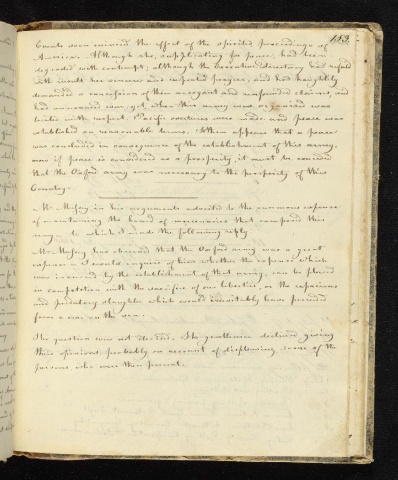 153
Events soon evinced the effect of the spirited proceedings of
America. Although she, supplicating for peace, had been
degraded with contempt; although the Executive Directory had refused
with insult her sincere and repeated prayers, and had haughtily
demanded a concession of their arrogant and unfounded claims, and
had announced war, yet, when this army was organized was
treated with respect. Pacific overtures were made and peace was
established on reasonable terms. It then appears that a peace
was concluded in consequence of the establishment of this army,
now if peace is considered as a prosperity, it must be conceded
that the Oxford army was necessary to the prosperity of this
Country.
Mr. in his arguments adverted to the enormous expense
of maintaining the band of mercenaries that composed this
army, to which I made the following reply
Mr. has observed that the Oxford army was a great
expense. I would enquire of him whether the expense which
was incurred by the establishment of that army, can be placed
in competition with the sacrifice of our liberties, or the rapacious
and predatory slaughter which would inevitably have proceeded
from a war on the sea.
The question was not decided. The gentlemen declined giving
their opinions probably on account of displeasing some of the
persons, who were then present.